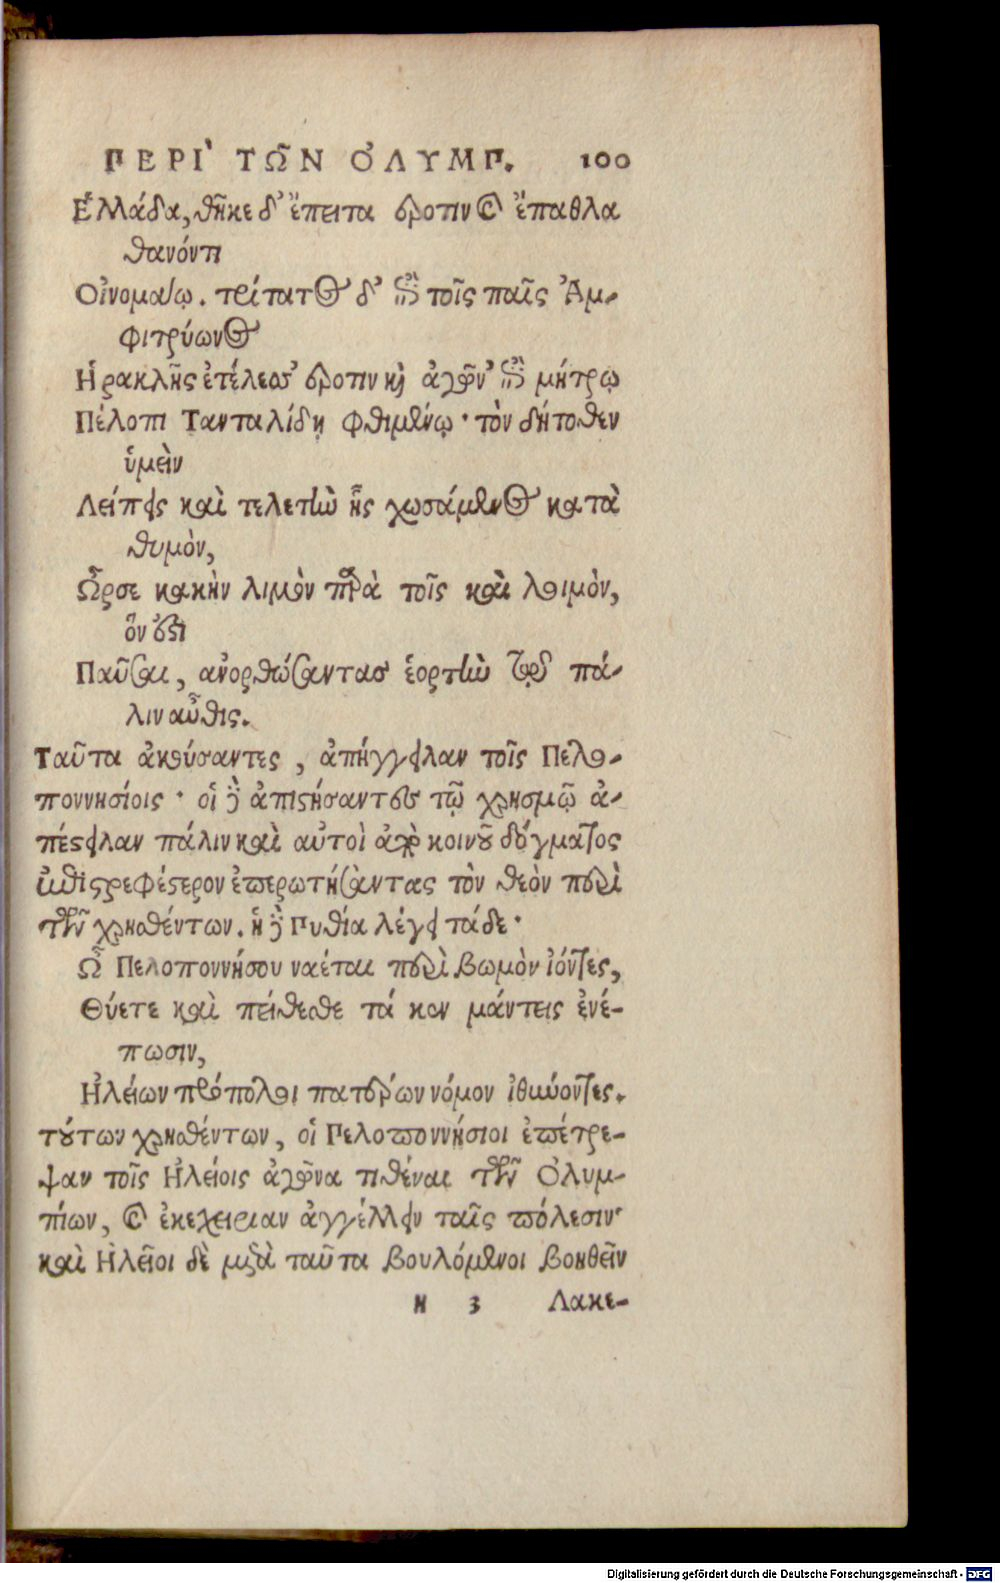 ΠΕΡΙ ΤΩ͂Ν ὈΛΥΜΠ. 100
Ἑλλάδα, θῆκε δ' ἔπειτα ἔροτιν καὶ ἔπαθλα
θανόντι
Οἰνομάῳ. τρίτατος δ' ἐπὶ τοῖς παῖς Ἀμ-
φιτρύωνος
Ἡρακλῆς ἐτέλεσσ' ἔροτιν καὶ ἀγῶν' ἐπὶ μήτρῳ
Πέλοπι Τανταλίδῃ φθιμένῳ· τὸν δήτοθεν
ὑμεὶν
Λείπεις καὶ τελετὴν ἧς χωσάμενος κατὰ
θυμὸν,
Ὦρσε κακὴν λιμὸν παρὰ τοῖς καὶ λοιμὸν,
ὃν ἔστι
Παῦσαι, ἀνορθώσαντας ἑορτὴν πά-
λιν αὖθις.
Ταῦτα ἀκούσαντες, ἀπήγγειλαν τοῖς Πελο-
ποννησίοις· οἱ δὲ ἀπιστήσαντες τῷ χρησμῷ ἀ-
πέστειλαν πάλιν καὶ αὐτοὶ ἀπὸ κοινοῦ δόγματος
ἐπιστρεφέστερον ἐπερωτήσαντας τὸν θεὸν περὶ
τῶν χρησθέντων. ἡ δὲ Πυθία λέγει τάδε·
Ὦ Πελοποννήσου ναέται περὶ βωμὸν ἰόντες,
Θύετε καὶ πείθεσθε τά κον μάντεις ἐνέ-
πωσιν,
Ἠλείων πρόπολοι πατέρων νόμον ἰθύοντες.
τούτων χρησθέντων, οἱ Πελοποννήσιοι ἐπέτρε-
ψαν τοῖς Ἠλείοις ἀγῶνα τιθέναι τῶν Ὀλυμ-
πίων, καὶ ἐκεχειρίαν ἀγγέλλειν ταῖς πόλεσιν·
καὶ Ἠλεῖοι δὲ μετὰ ταῦτα βουλόμενοι βοηθεῖν
N 3 Λακε-
Digitalisierung gefördert durch die Deutsche Forschungsgemeinschaft - DFG